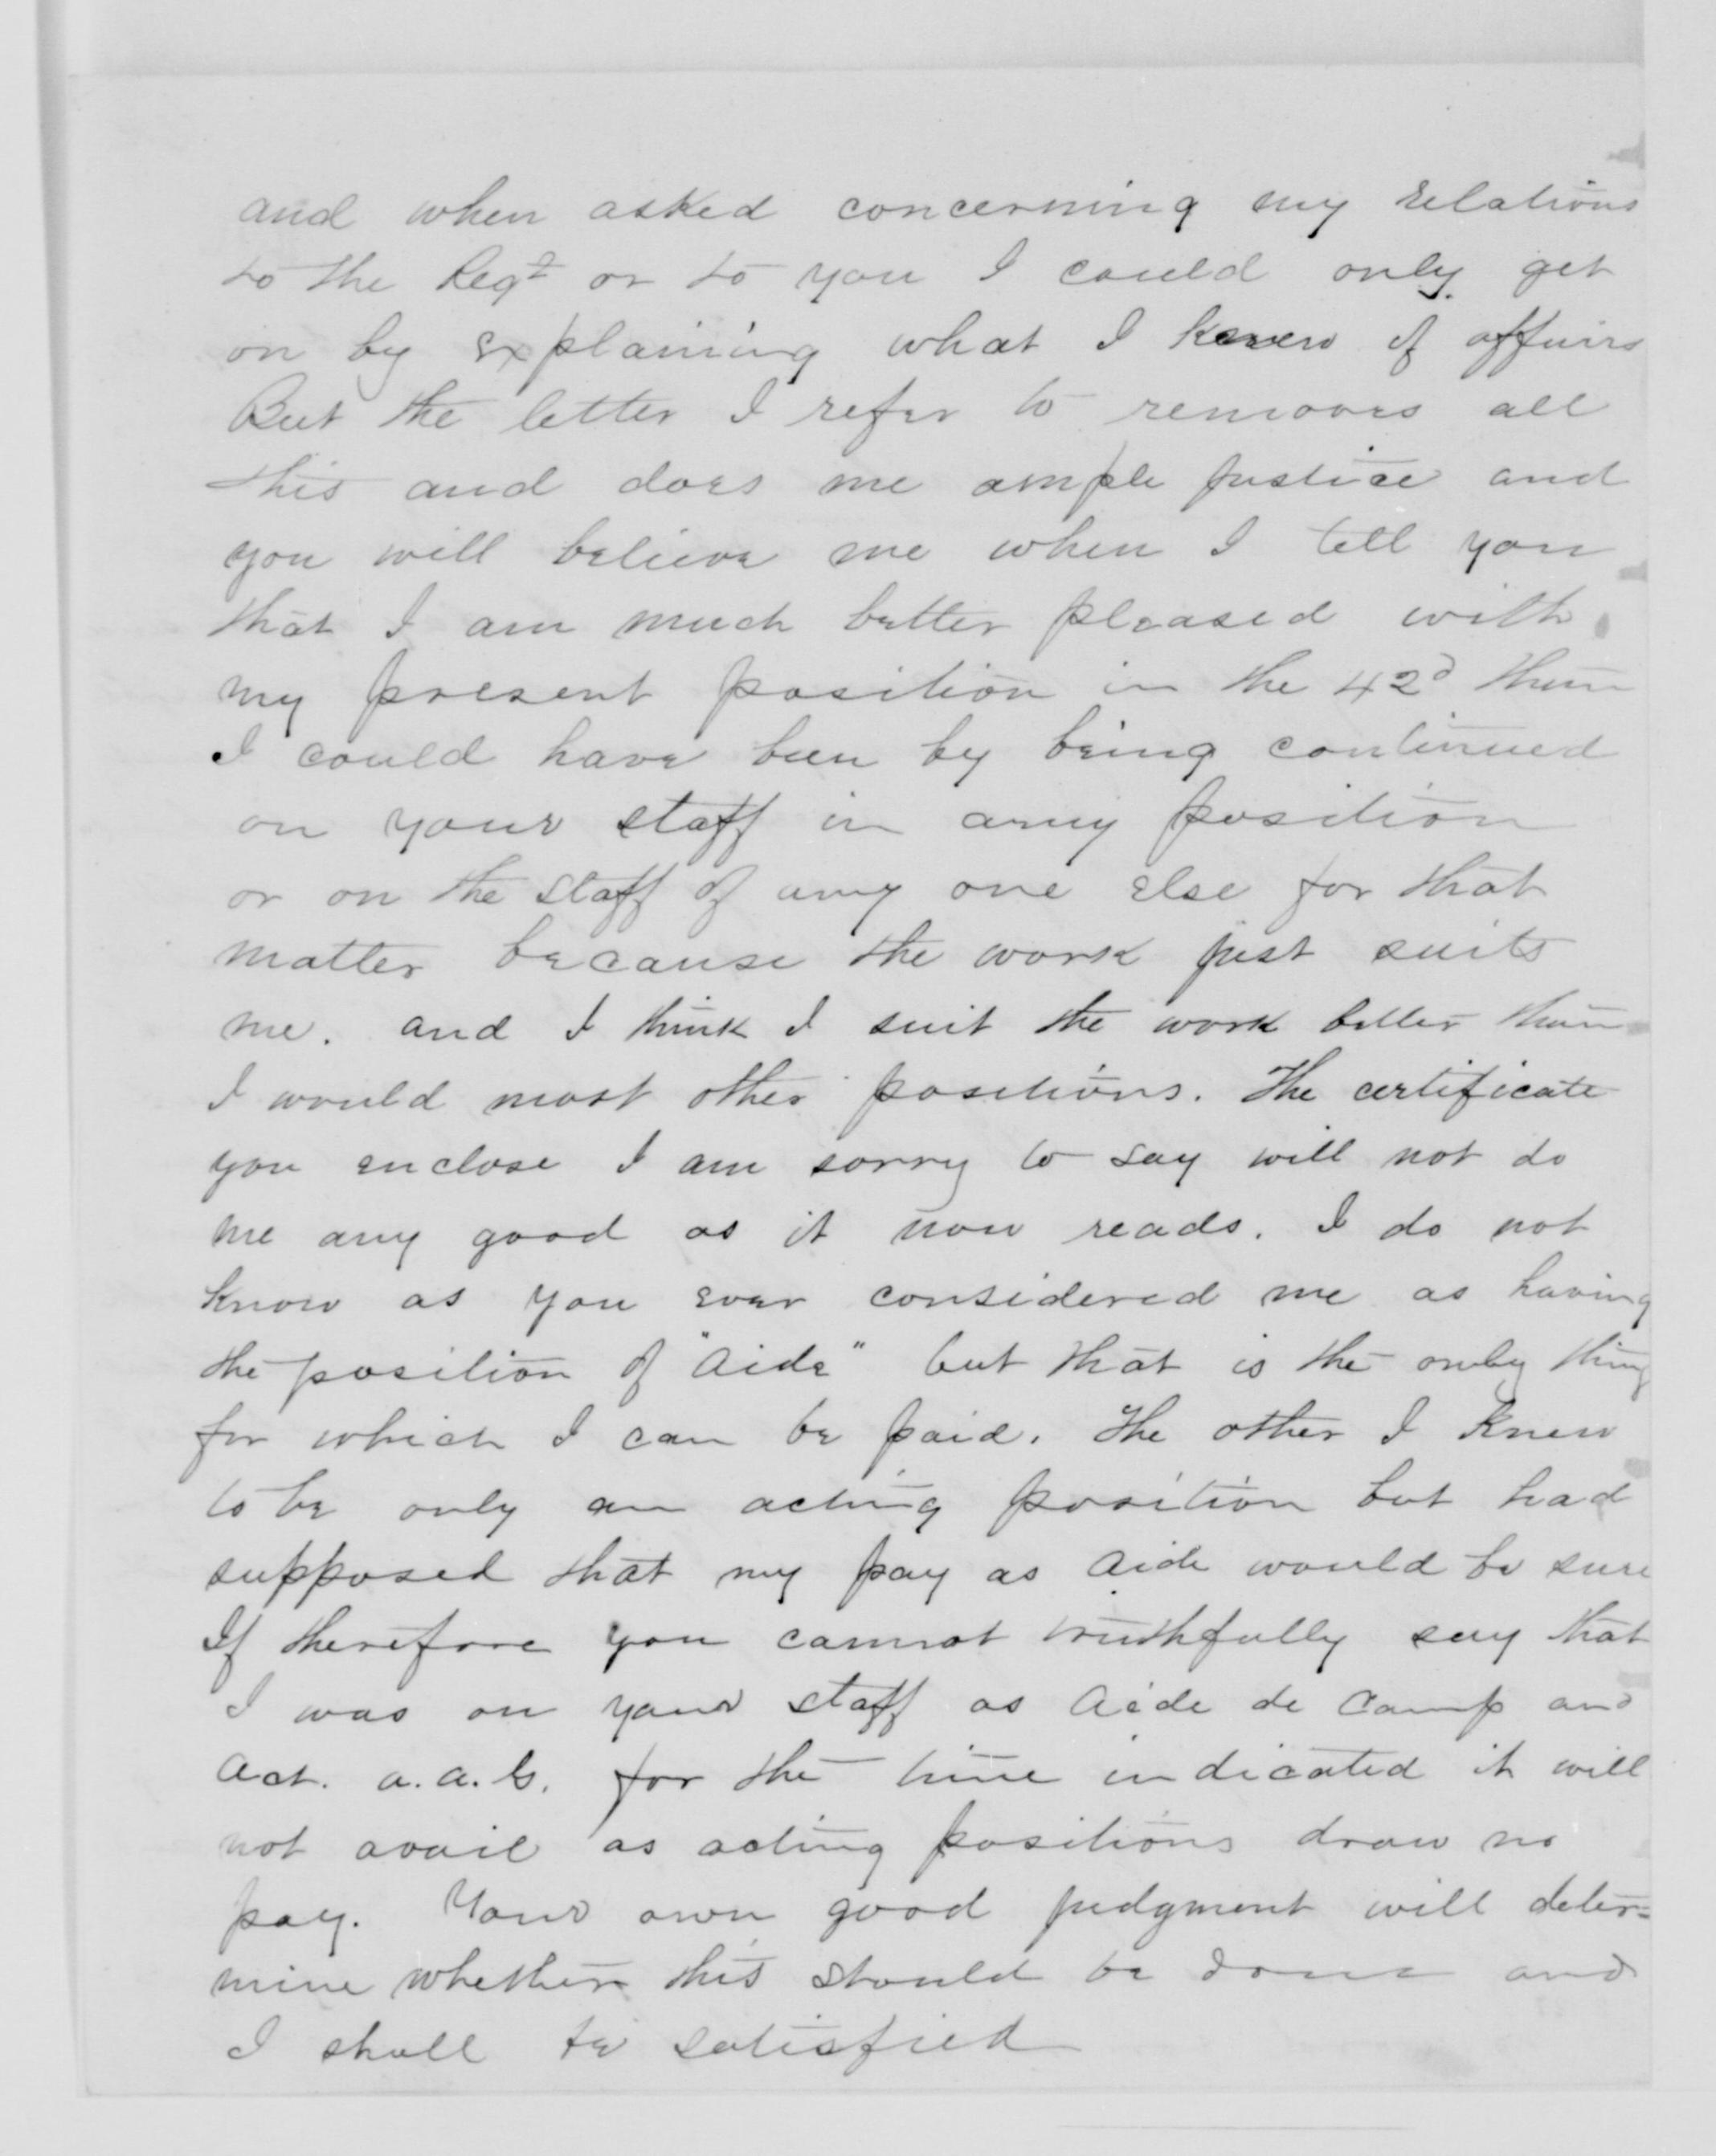 and when asked concerning my relations
to the Regt or to you I could only get
on by explaining what I knew of affairs
But the letter I refer to removes all
this and does me ample justice and
you will believe me when I tell you
that I am much better pleased with
my present position in the 42d than
I could have been by being continued
on your staff in any position
or on the staff of any one else for that
matter because the work just suits
me. and I think I suit the work better than
I would most other positions. The certificate
you enclose I am sorry to say will not do
me any good as it now reads. I do not
know as you ever considered me as having
the position of "Aide" but that is the only thing
for which I can be paid. The other I knew
to be only an acting position but had
supposed that my pay as Aide would be sure
If therefore you cannot truthfully say that
I was on your staff as Aide de Camp and
Act. a.a.G. for the time indicated it will
not avail as acting positions draw no
pay. Your own good judgment will deter=
mine whether this should be done and
I shall be satisfied